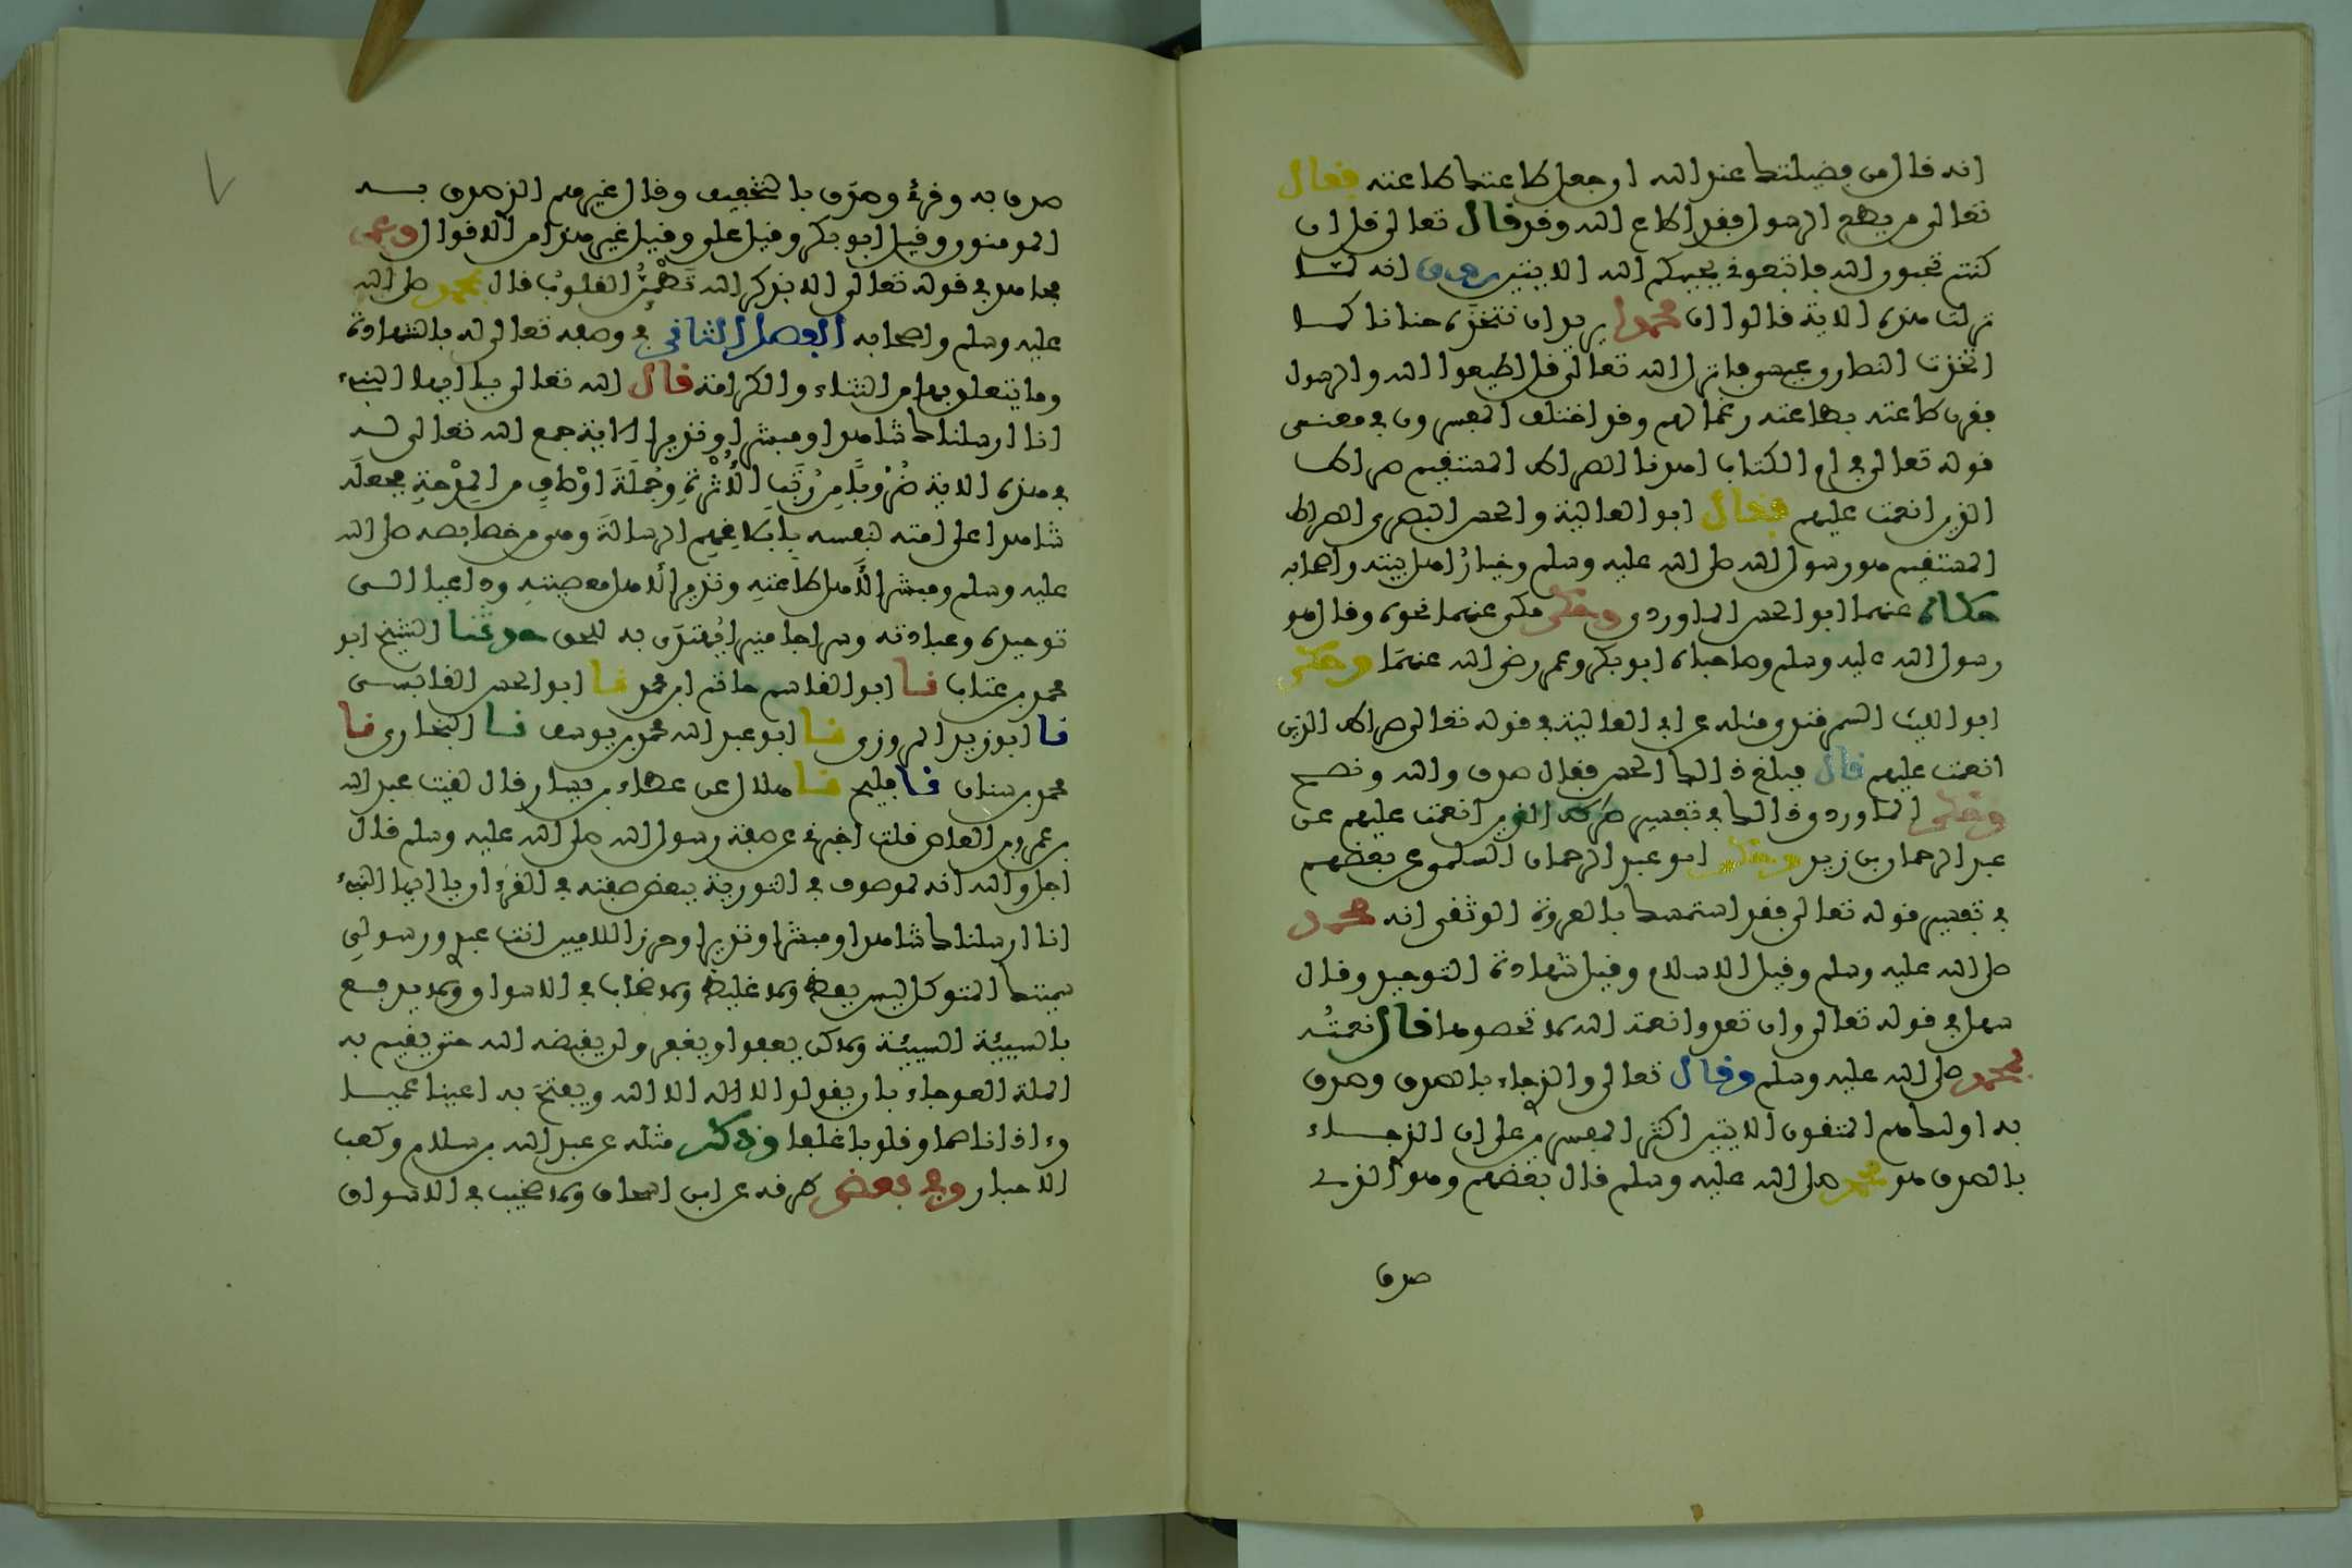 انه قال من فضيلتك عند الله ان جعل طاعتك طاعته فقال
تعالى من يطع الرسول فقد اطاع الله وقد قال تعالى قل ان
كنتم تحبون الله فاتبعوني يحببكم الله الايتين روي انه لما
نزلت هذه الاية قالوا ان محمدا يريد ان نتخذه حنانا كما
اتخذت النصارى عيسى فانزل الله تعالى قل اطيعوا الله والرسول
فقرن طاعته بطاعته رغما لهم وقد اختلف المفسرون في معنى
قوله تعالى في ام الكتاب اهدنا الصراط المستقيم صراط
الذين انعمت عليهم فقال ابو العالية والحسن البصري الصراط
المستقيم هو رسول الله صلى الله عليه وسلم وخيارُ اهل بيته واصحابه
حكاه عنهما ابو الحسن الماوردي وحكى مكي عنهما نحوه وقال هو
رسول الله عليه وسلم وصاحباه ابو بكر وعمر رضي الله عنهما وحكى
ابو الليث السمرقندي مثله عن ابي العالية في قوله تعالى صراط الذين
انعمت عليهم قال فبلغ ذالك الحسن فقال صدق والله ونصح
وحكى الماوردي ذالك في تفسير صراط الذين انعمت عليهم عن
عبد الرحمان بن زيد وحكى ابو عبد الرحمان السلمي عن بعضهم
في تفسير قوله تعالى فقد استمسك بالعروة الوثقى انه محمد
صلى الله عليه وسلم وقيل الاسلام وقيل شهادة التوحيد وقال
سهل في قوله تعالى وان تعدوا نعمة الله لا تحصوها قال نعمتُه
بمحمد صلى الله عليه وسلم وقال تعالى والذي جاء بالصدق وصدق
به اولئك هم المتقون الايتين اكثر المفسرين على ان الذي جاء
بالصدق هو محمد صلى الله عليه وسلم قال بعضهم وهو الذي
صدق
صدق به وقرئ وصدَق بالتخفيف وقال غيرهم الذي صدق به
المومنون وقيل ابو بكر وقيل علي وقيل غير هذا من الاقوال وعن
مجاهد في قوله تعالى الا بذكر الله تَطْمَئِنُّ القلوبُ قال بمحمد صلى الله
عليه وسلم واصحابه الفصل الثاني في وصفه تعالى له بالشهادة
وما يتعلق بها من الثناء والكرامة قال الله تعالى يا ايها النبيء
انا ارسلناك شاهدا ومبشرا ونذيرا الاية جمع الله تعالى له
في هذه الاية ضُرُوباً مِن رُتَبِ الأُثْرَةِ وجُملَةَ اوْصافٍ من المِدْحَةِ فجعلَه
شاهدا على امته لنفسه بإبلاغِهِم الرسالةَ وهي من خصائصه صلى الله
عليه وسلم ومبشرا لأهل طاعته ونذيرا لأهل معصيته وداعيا الى
توحيده وعبادته وسراجا منيرا يُهتدَى به للحق حدثنا الشيخ ابو
محمد بن عتاب نا ابو القاسم حاتم ابن محمد نا ابو الحسن القابسي
نا ابو زيد المروزي نا ابو عبد الله محمد بن يوسف نا البخاري نا
محمد بن سنان نا فليح نا هلال عن عطاء بن يسار قال لقيت عبد الله
بن عمرو بن العاص قلت اخبرني عن صفة رسول الله صلى الله عليه وسلم قال
اجل والله انه لموصوف في التورية ببعض صفته في القرءان يا ايها النبيء
انا ارسلناك شاهدا ومبشرا ونذيرا وحرزا للاميين انت عبدي ورسولي
سميتك المتوكل ليس بفظ ولا غليظ ولا صخاب في الاسواق ولا يدفع
بالسيئة السيئة ولاكن يعفوا ويغفر ولن يقبضه الله حتى يقيم به
الملة العوجاء بان يقولوا لا اله الا الله ويفتحَ به اعينا عميا
وءاذانا صما وقلوبا غلفا وذكر مثله عن عبد الله بن سلام وكعب
الاحبار وفي بعض طرقه عن ابن اسحاق ولا صخب في الاسواق